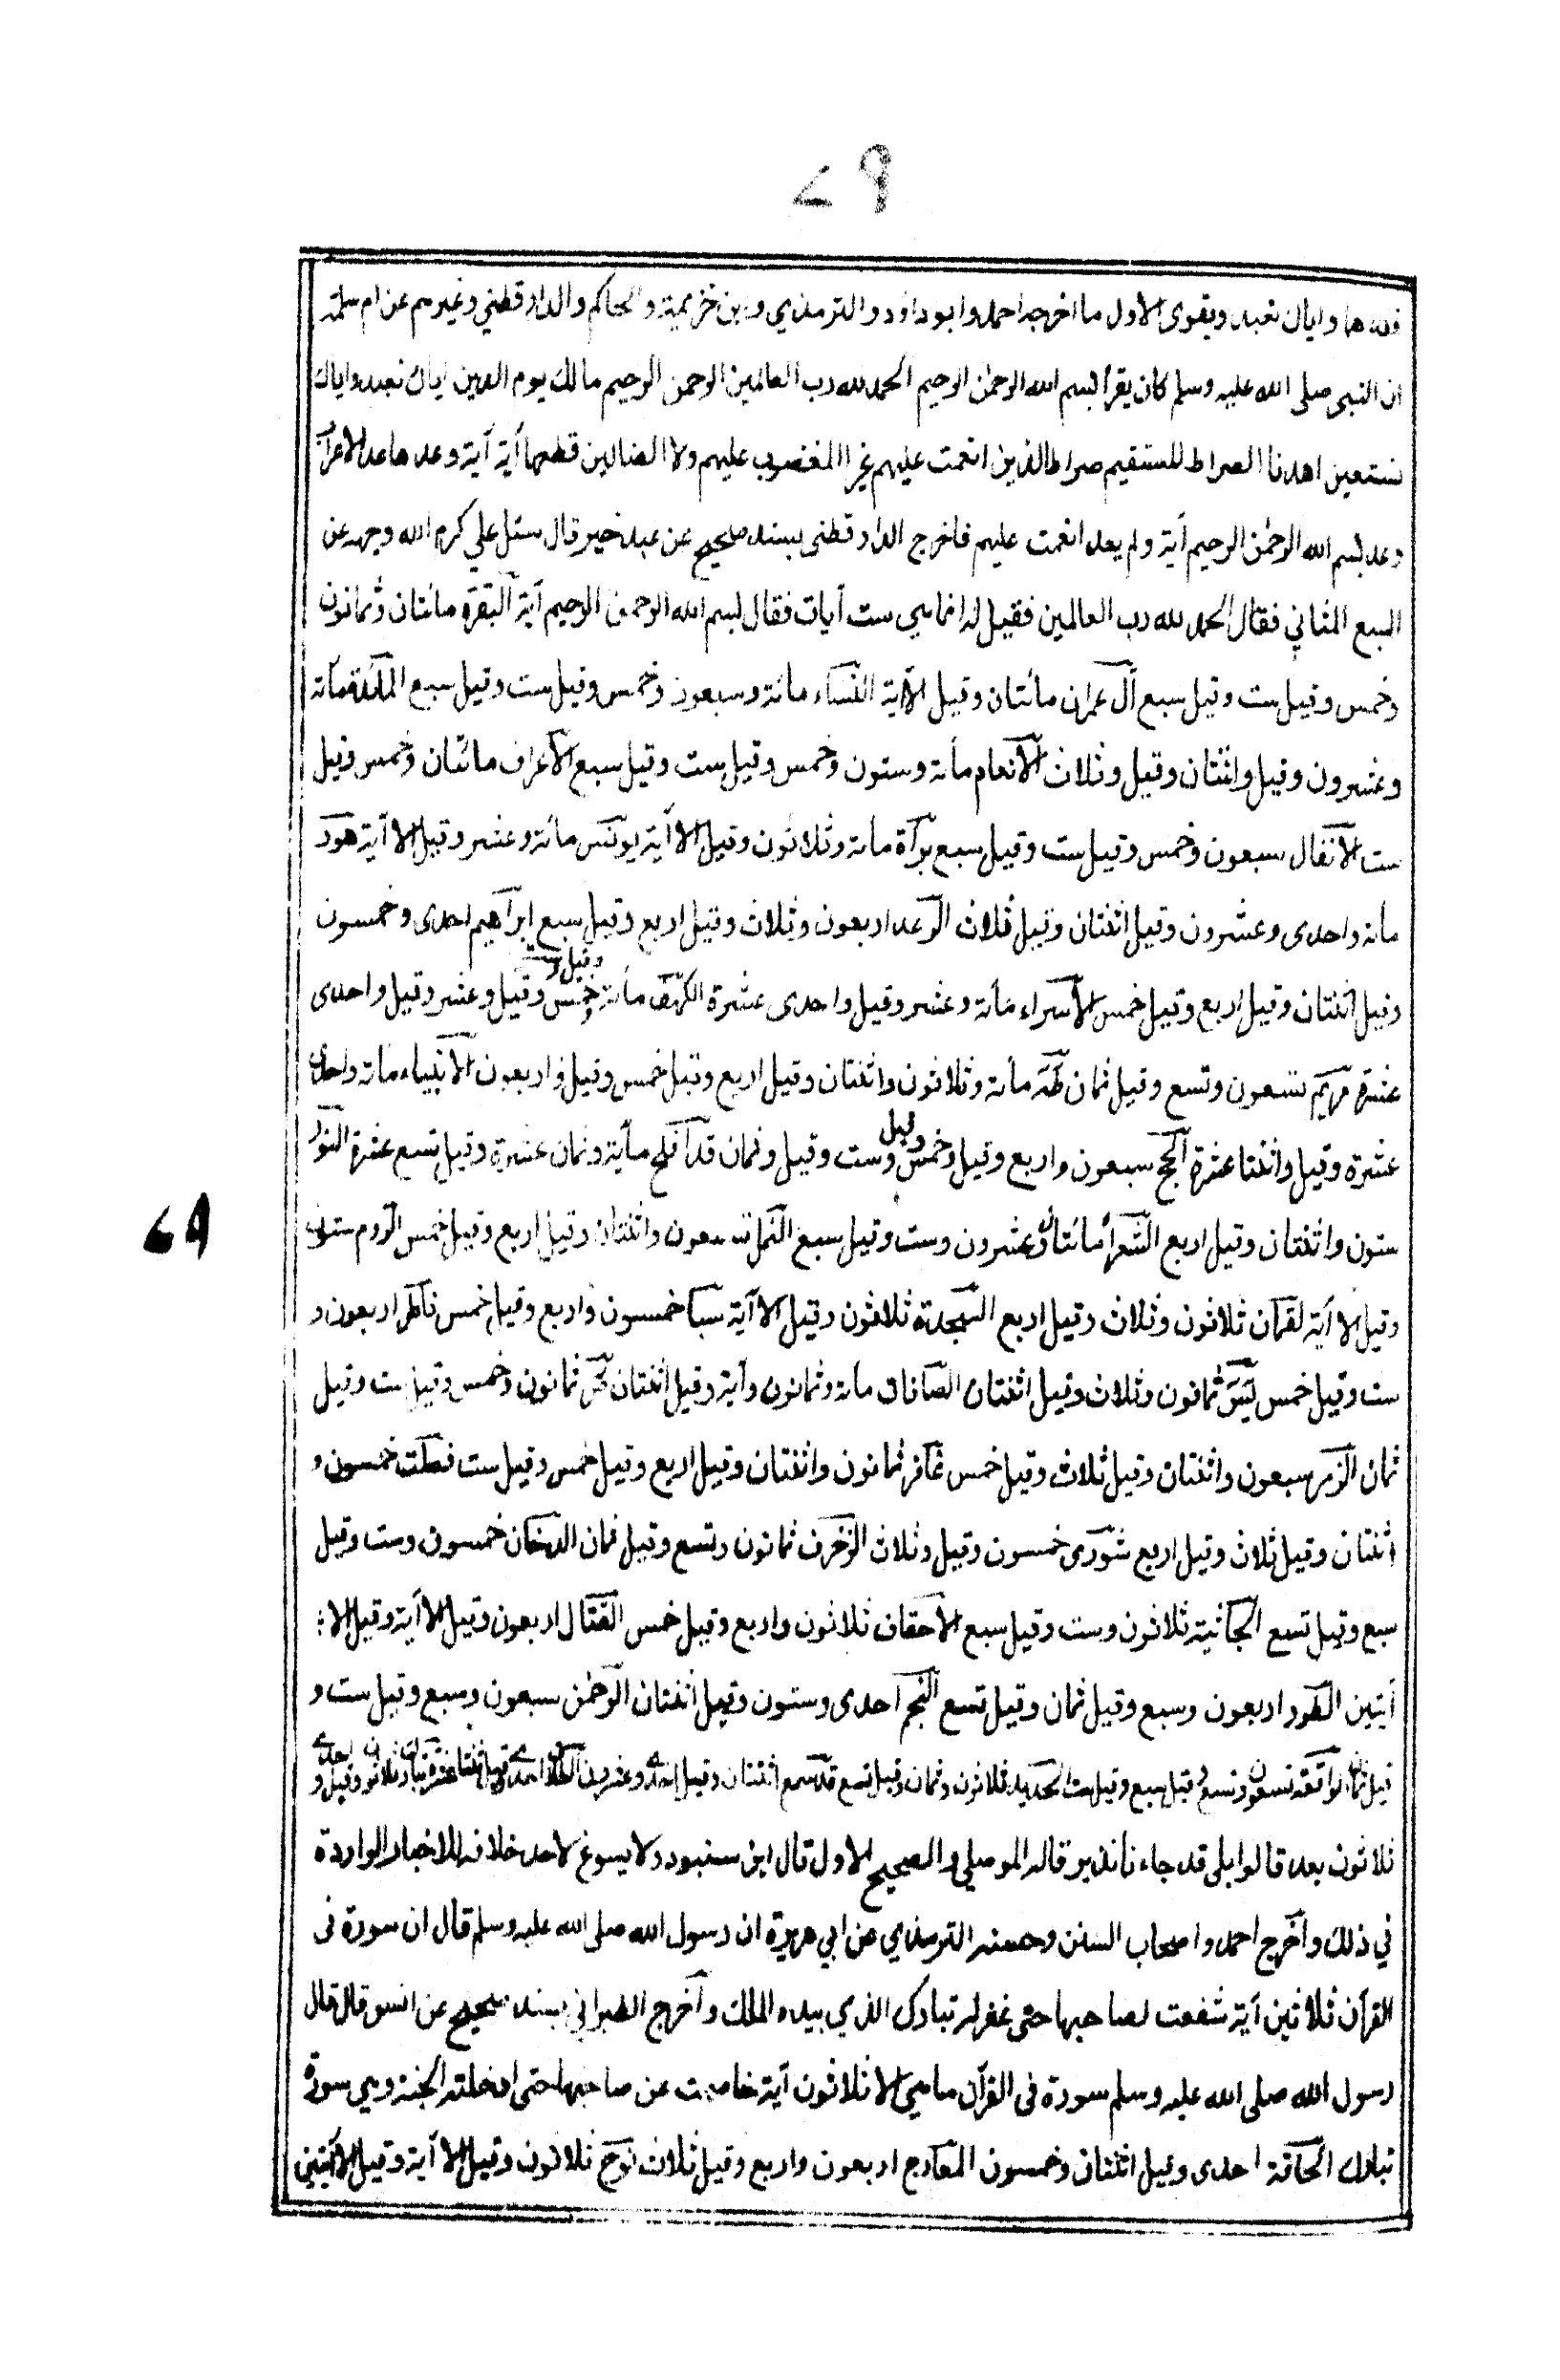 ٧٩
فعدها واياك نعبد ويقوى الاول ما اخرجه احمد وابو داود والترمذي وابن خزيمة والحاكم والدارقطني وغيرهم عن ام سلمة
ان النبي صلى الله عليه وسلم كان يقرأ بسم الله الرحمن الرحيم الحمد لله رب العالمين الرحمن الرحيم مالك يوم الدين اياك نعبد واياك
نستعين اهدنا الصراط المستقيم صراط الذين انعمت عليهم غير المغضوب عليهم ولا الضالين قطعها آية آية وعدها عد الاعراب
وعد بسم الله الرحمن الرحيم آية ولم يعد انعمت عليهم فاخرج الدارقطني بسند صحيح عن عبد خير قال سئل علي كرم الله وجهه عن
السبع المثاني فقال الحمد لله رب العالمين فقيل له انما هي ست آيات فقال بسم الله الرحمن الرحيم آية البقرة مائتان وثمانون
وخمس وقيل ست وقيل سبع آل عمران مائتان وقيل الا آية النساء مائة وسبعون وخمس وقيل ست وقيل سبع المائدة مائة
وعشرون وقيل واثنتان وقيل وثلاث الانعام مائة وستون وخمس وقيل ست وقيل سبع الاعراف مائتان وخمس وقيل
ست الانفال سبعون وخمس وقيل ست وقيل سبع براة مائة وثلاثون وقيل الا آية يونس مائة وعشر وقيل الا آية هود
مائة واحدى وعشرون وقيل اثنتان وقيل ثلاث الرعد اربعون وثلاث وقيل اربع وقيل سبع ابراهيم احدى وخمسون
وقيل اثنتان وقيل اربع وقيل خمس الاسراء مائة وعشر وقيل واحدى عشرة الكهف مائة وخمس وقيل وست وقيل وعشر وقيل واحدى
عشرة مريم تسعون وتسع وقيل ثمان طه مائة وثلاثون واثنتان وقيل اربع وقيل خمس وقيل واربعون الانبياء مائة واحدى
عشرة وقيل واثنتا عشرة الحج سبعون واربع وقيل وخمس وقيل وست وقيل وثمان قد افلح مائة وثمان عشرة وقيل تسع عشرة النور
ستون واثنتان وقيل اربع الشعراء مائتان وعشرون وست وقيل سبع النمل تسعون واثنتان وقيل اربع وقيل خمس الروم ستون
وقيل الا آية لقمان ثلاثون وثلاث وقيل اربع السجدة ثلاثون وقيل الا آية سبا خمسون واربع وقيل خمس فاطر اربعون و
ست وقيل خمس يس ثمانون وثلاث وقيل اثنتان الصافات مائة وثمانون وآية وقيل اثنتان ص ثمانون وخمس وقيل ست وقيل
ثمان الزمر سبعون واثنتان وقيل ثلاث وقيل خمس غافر ثمانون واثنتان وقيل اربع وقيل خمس وقيل ست فصلت خمسون و
اثنتان وقيل ثلاث وقيل اربع شورى خمسون وقيل وثلاث الزخرف ثمانون وتسع وقيل ثمان الدخان خمسون وست وقيل
سبع وقيل تسع الجاثية ثلاثون وست وقيل سبع الاحقاف ثلاثون واربع وقيل خمس القتال اربعون وقيل الا آية وقيل الا
آيتين الطور اربعون وسبع وقيل ثمان وقيل تسع النجم احدى وستون وقيل اثنتان الرحمن سبعون وسبع وقيل ست و
قيل ثمان الواقعة تسعون وتسع وقيل سبع وقيل ست الحديد ثلاثون وثمان وقيل تسع قد سمع اثنتان وقيل احدى وعشرون الطلاق احدى وقيل اثنتا عشرة تبارك ثلاثون وقيل احدى و
ثلاثون بعد قالوا بلى قد جاءنا نذير قال الموصلي والصحيح الاول قال ابن سنبود ولا يسوغ لاحد خلافه للاخبار الواردة
في ذلك واخرج احمد واصحاب السنن وحسنه الترمذي عن ابي هريرة ان رسول الله صلى الله عليه وسلم قال ان سورة في
القرآن ثلاثين آية شفعت لصاحبها حتى غفر له تبارك الذي بيده الملك واخرج الطبراني بسند صحيح عن انس قال قال
رسول الله صلى الله عليه وسلم سورة في القرآن ما هي الا ثلاثون آية خاصمت عن صاحبها حتى ادخلته الجنة وهي سورة
تبارك الحاقة احدى وقيل اثنتان وخمسون المعارج اربعون واربع وقيل ثلاث نوح ثلاثون وقيل الا آية وقيل الا آيتين
٧٩